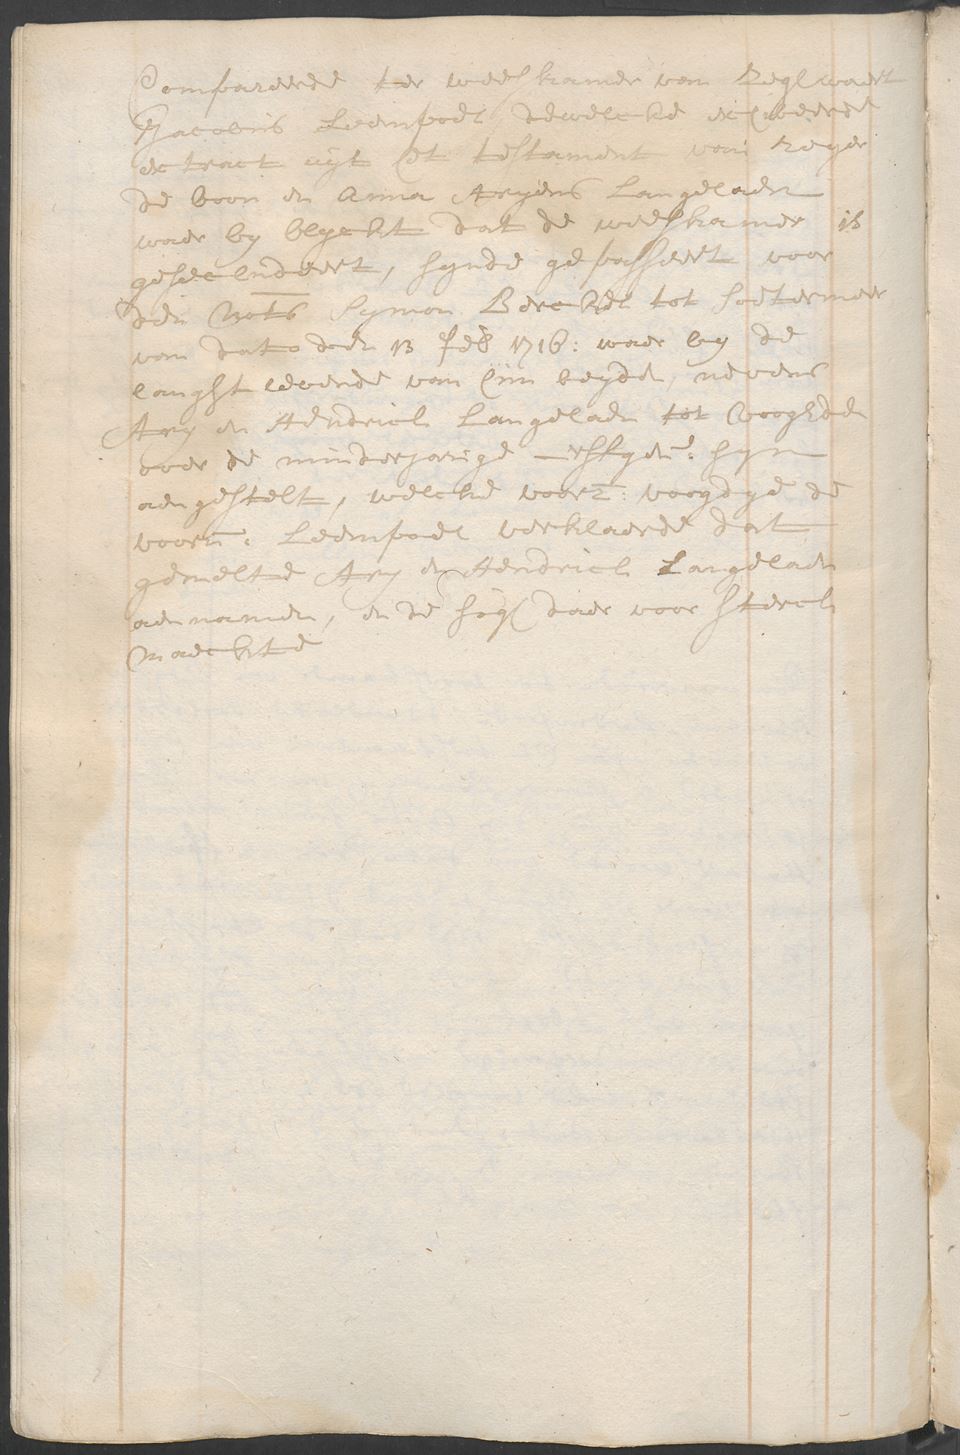 Compareerde ter weeskamer van Zegwaert
Jacobus Leempoel dewelcke exhibeerde
extract uijt het testament van Reyer
de boon en Anna Aryens Langelaen
waer by blyckt dat de weeskamer is
gesecludeert, synde gepasseert voor
den Nots Symon Berckel tot Soetermeer
van dato den 13 feb 1716: waer by de
langhst levende van hun beyde, nevens
Ary en Hendrick Langelaen tot vooghden
over de minderjarige syn
aengestelt, welcke voorn: voogdye de
voorn: Leempoel verklaerde dat
gemelte Ary en Hendrick Langelaen
aennamen, en de sig daer voor sterck
maeckte